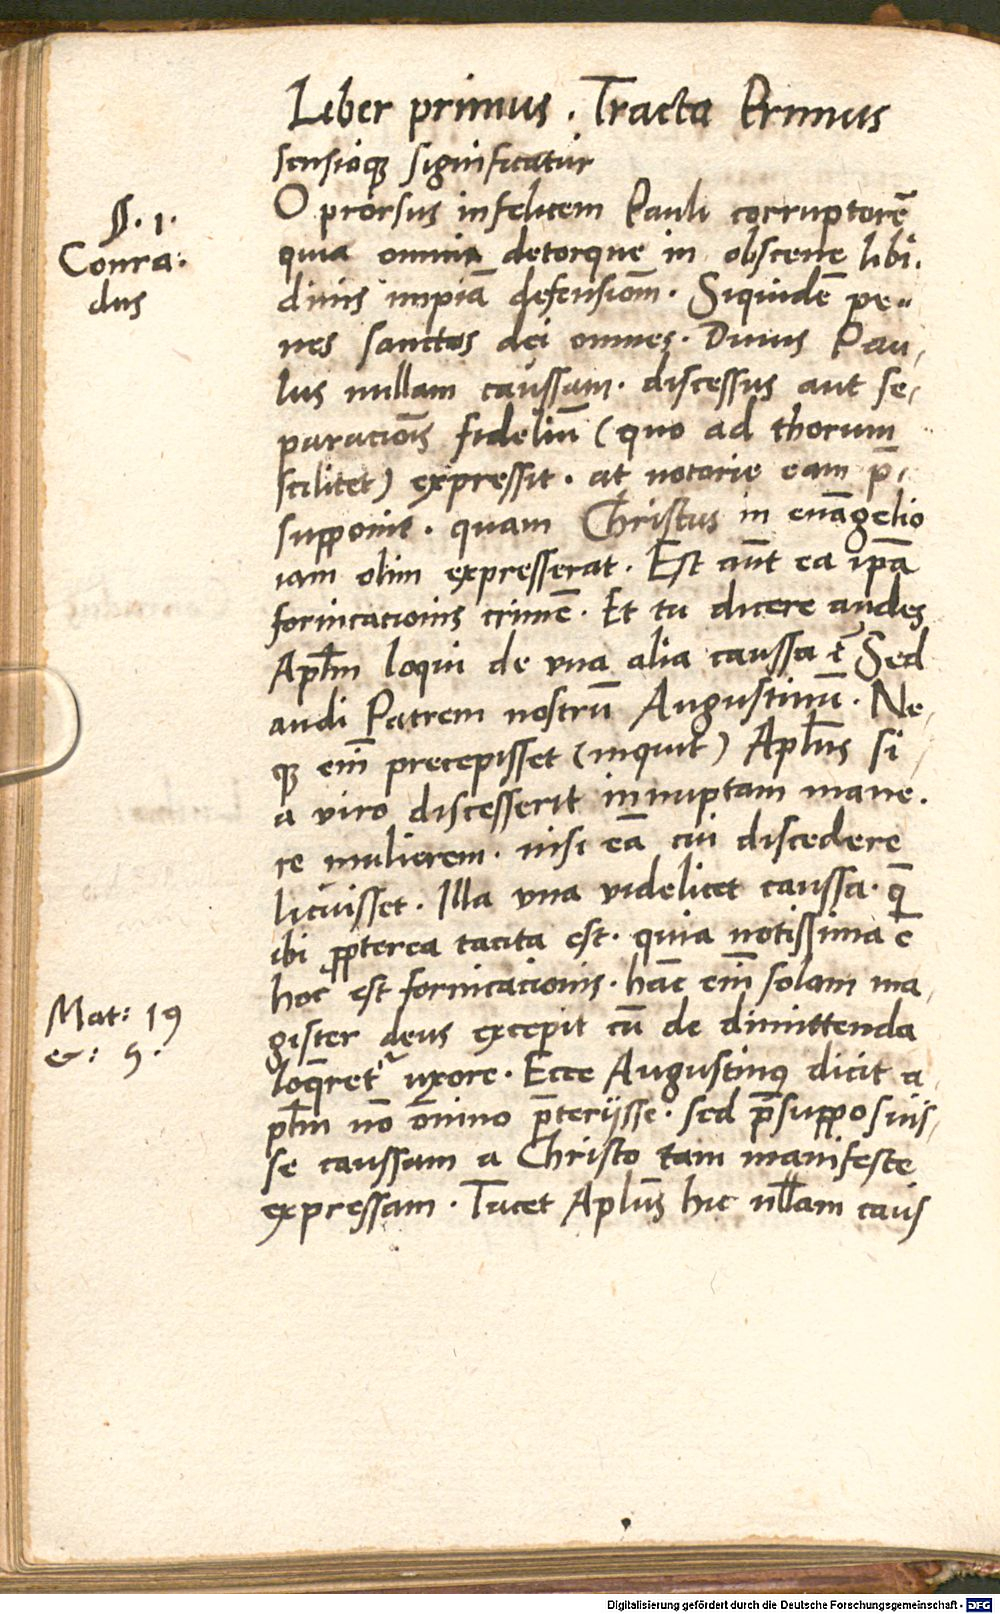 Liber primus . Tracta Primus
sensioq̃ significatur
§. 1.
Conra:
dus
O prorsus infelicem Pauli corruptorē
quia omnia detorque in obscene libi.
dinis impiā defensiōm. Siquidē pe„
nes sanctos dei omnes. Diuus Pau,
lus nullam caussam. discessus aut se,
paraciōis fideliū (quo ad thorum
scilitet) expressit. at notorie eam p̄,
supponit. quam Christus in euāgelio
iam olim expresserat. Est aūt ea ipā
fornicacionis crimē. Et tu dicere audes
Aplm̄ loqui de vna alia caussa ē Sed
audi Patrem nostrū Augustinū. Ne,
q̃ eīn precepisset (inquit) Aplūs si,
a viro discesserit innuptam mane.
re mulierem. nisi eā cui discedere
licuisset. Illa vna videlicet caussa. q̄
ibi ꝓpterea tacita est. quia notissima ē
hoc est fornicacionis. hāc eīn solam ma,
Mat: 19
&: 5.
gister deus excepit cū de dimittenda
loq̄ret᷑ uxore. Ecce Augustinꝰ dicit a,
plm̄ nō ōnino p̄teriisse. sed p̄supposuis,
se caussam a Christo tam manifeste
expressam. Tacet Aplūs hic nllam caus
Digitalisierung gefördert durch die Deutsche Forschungsgemeinschaft - DFG